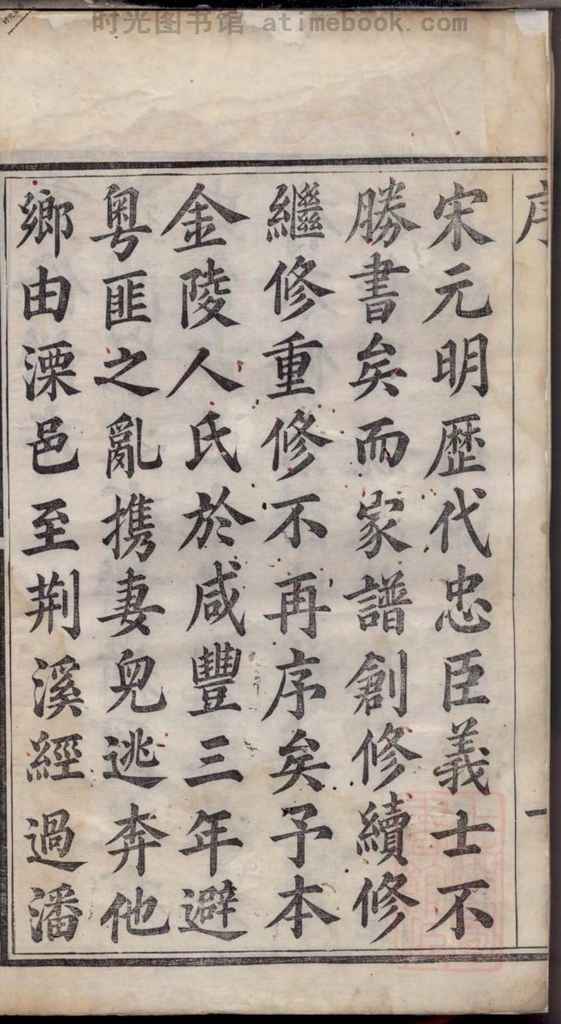 时光图书馆 atimebook.com
序
一
宋元明歷代忠臣義士不
勝書矣而家譜創修續修
繼修重修不再序矣予本
金陵人氏於咸豐三年避
粤匪之亂携妻兒逃奔他
鄉由溧邑至荆溪經過潘